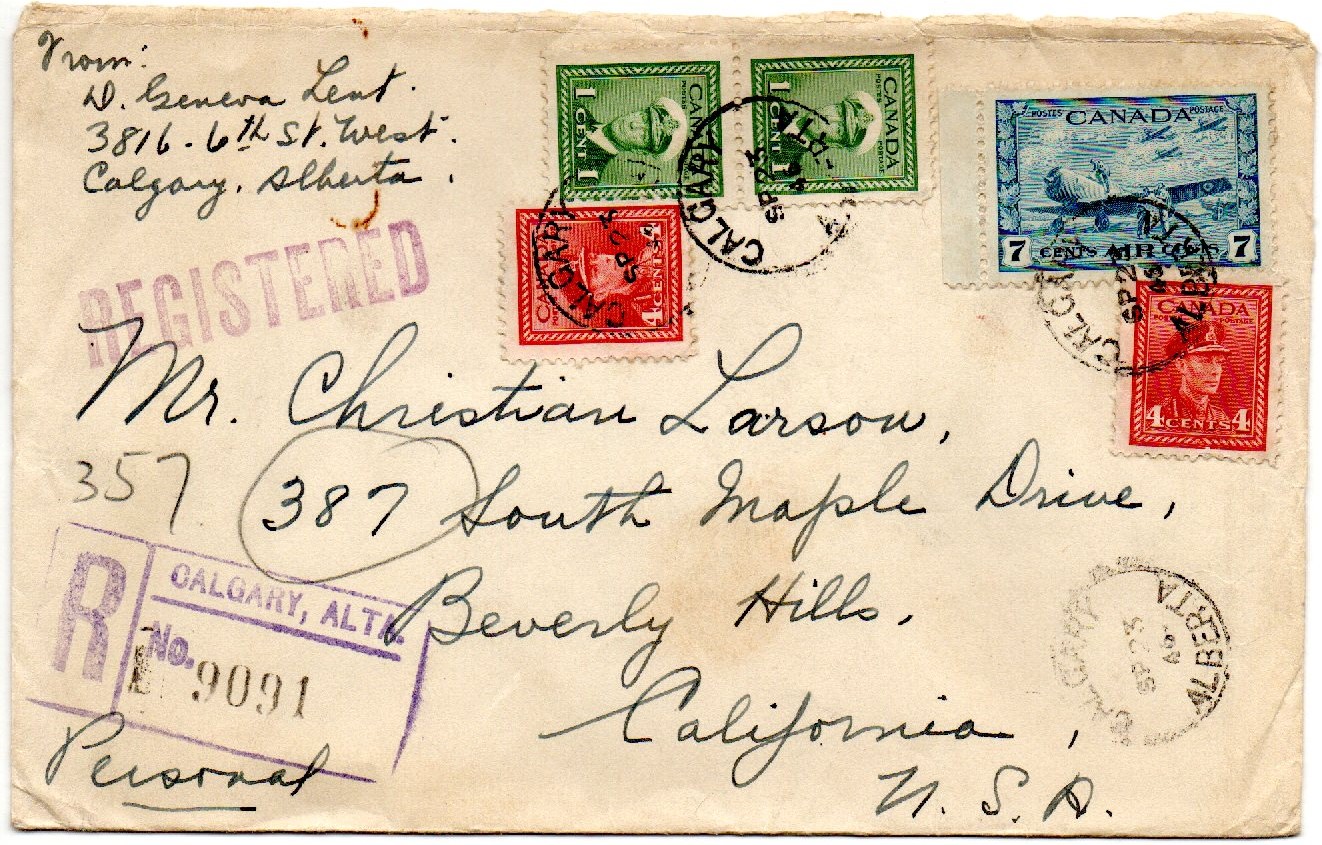 From:
D. Geneva Lent.
3816 - 6th St. West.
Calgary, Alberta.
REGISTERED
1 CENT 1
CANADA
POSTES POSTAGE
1 CENT 1
CANADA
POSTES POSTAGE
CANADA
4 CENTS 4
POSTES CANADA POSTAGE
7 CENTS AIR CENTS 7
CANADA
POSTES POSTAGE
4 CENTS 4
CALGARY
SP 23
CALGARY
SP 23
46
CALGARY
SP 23
46
ALBERTA
Mr. Christian Larson,
357
387 South Maple Drive,
Beverly Hills.
California,
U. S. A.
R
CALGARY, ALTA.
No.
9091
Personal
CALGARY
SP 23
46
ALBERTA